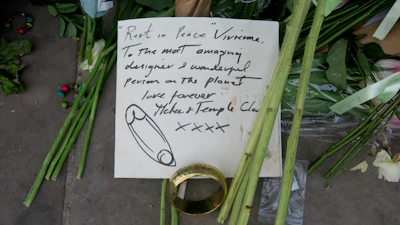 "Rest in Peace" Vivienne.
To the most amazing
designer & wonderful
person on the planet
love forever
& Temple Clar
xxxx